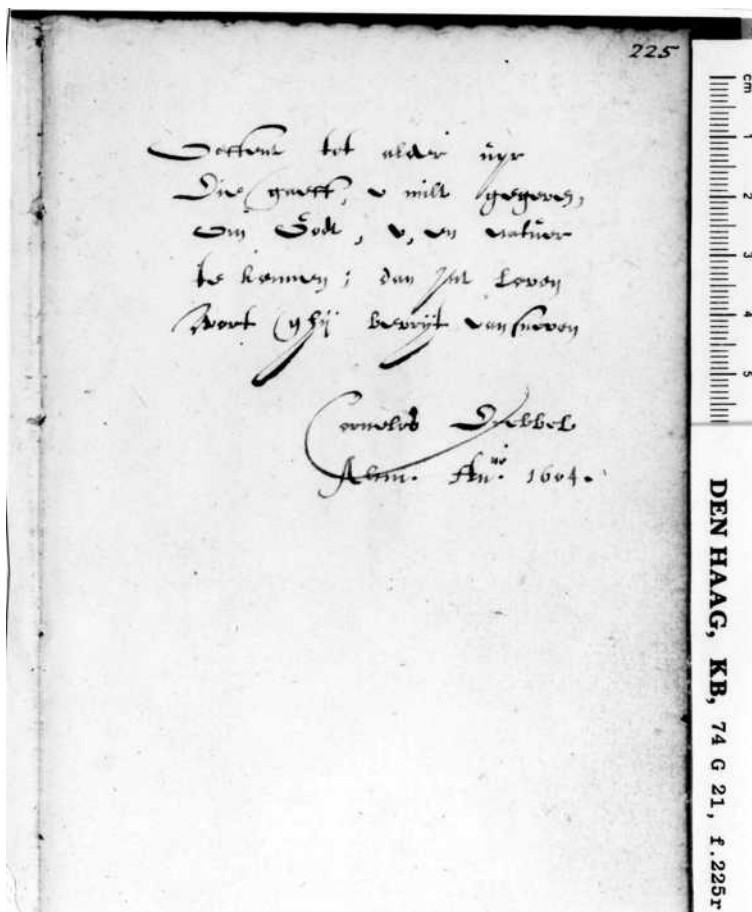 225
Oeffent tot alder uyr
Die gaeff, u milt gegeven,
Om Godt, u, en natuer
te kennen; dan int Leven
Wort ghij bevryt van sneven
Cornelis Drebbel
Alcm. Anno. 1604.
cm
1
2
3
4
5
DEN HAAG, KB, 74 G 21, f.225r